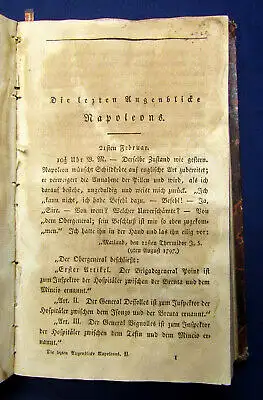 Die letzten Augenblicke
Napoleons.
21sten Februar.
10½ Uhr V. M. — Derselbe Zustand wie gestern.
Napoleon wünscht Schildkröte auf englische Art zubereitet;
er verweigert die Annahme der Pillen und wird, als ich
darauf bestehe, ungeduldig und weist mich zurück. „Ich
kann nicht, ich habe Befehl dazu. — Befehl! — Ja,
„Sire. — Von wem? Welcher Unverschämte? — Von
„dem Obergeneral; sein Beschluß ist mir so eben zugekom=
„men.“ Ich hatte ihn in der Hand und las ihn eilig vor:
„Mailand, den 22sten Thermidor J. 5.
(9ten August 1797.)
„Der Obergeneral beschließt:
„Erster Artikel. Der Brigadegeneral Point ist
zum Inspektor der Hospitäler zwischen der Brenta und dem
Mincio ernannt.“
„Art. II. Der General Dessolles ist zum Inspektor der
Hospitäler zwischen dem Isonzo und der Brenta ernannt.“
„Art. III. Der General Vignolles ist zum Inspektor
der Hospitäler zwischen dem Mincio und der Adda ernannt.“
Die letzten Augenblicke Napoleons. II.
1